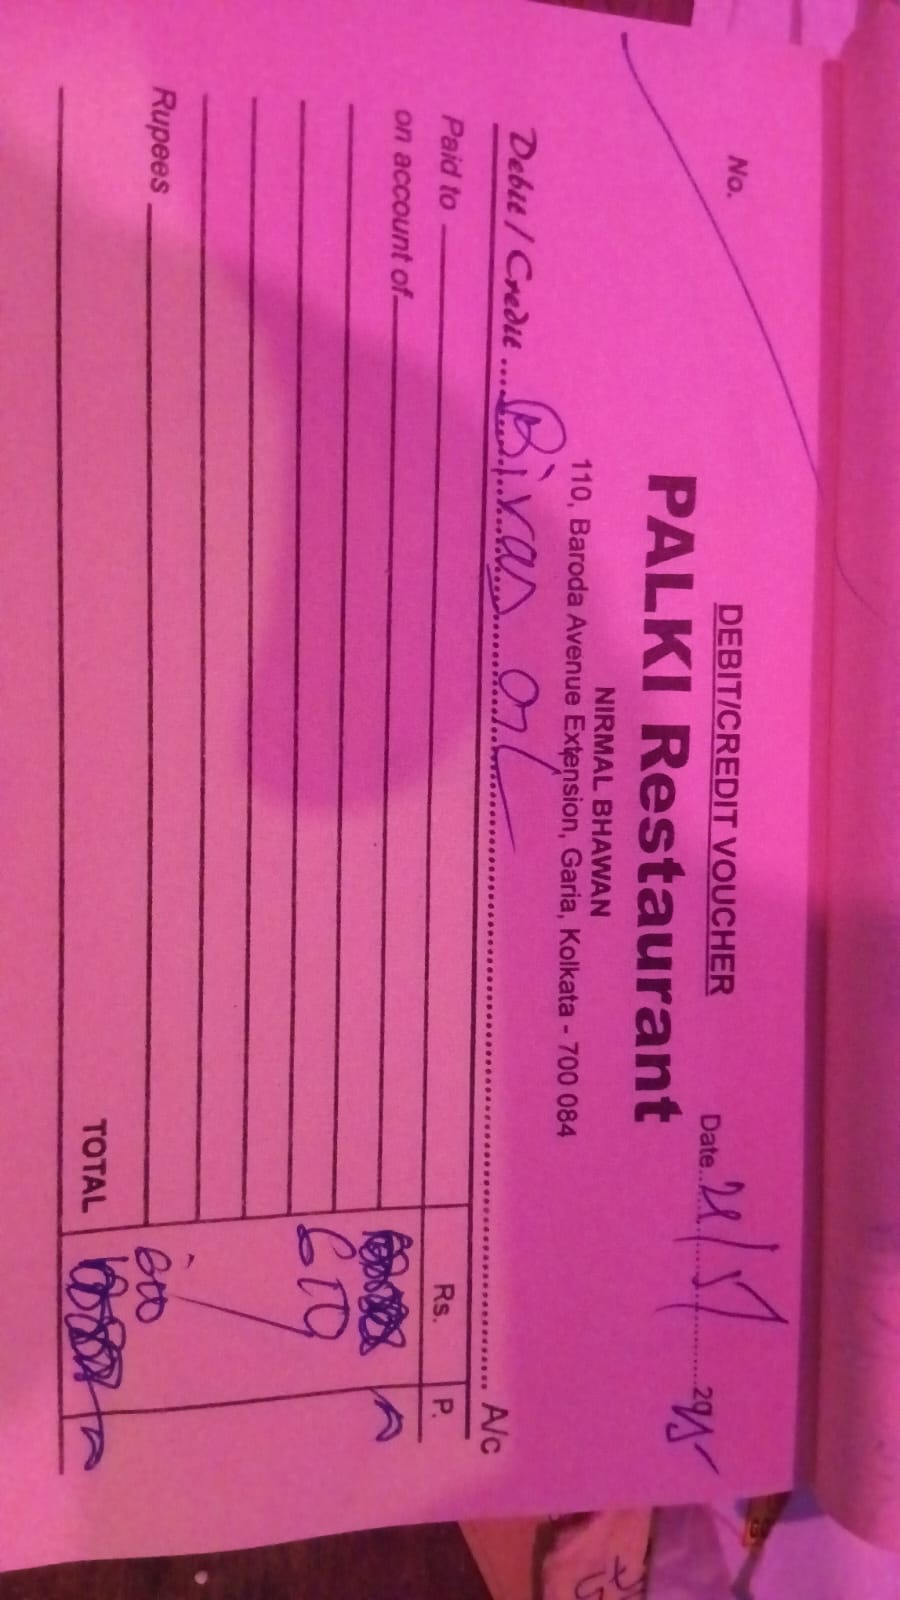 DEBIT/CREDIT VOUCHER
No.
Date
PALKI Restaurant
NIRMAL BHAWAN
110, Baroda Avenue Extension, Garia, Kolkata - 700 084
Debit / Credit ........ A/c
Rs. P.
Paid to
on account of
Rupees
600
TOTAL